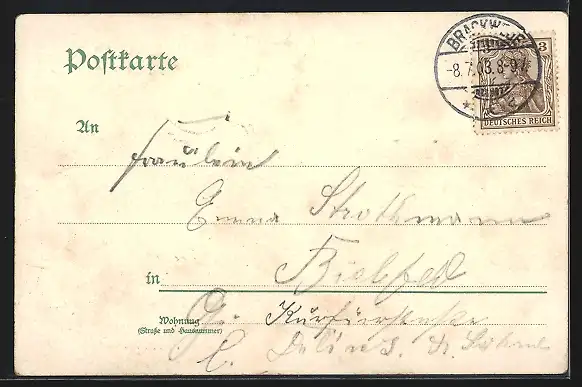 Postkarte
BRACKWEDE
-8.7.03. 8-9V.
3
DEUTSCHES REICH
An
Fräulein
Emma Strothmann
in Bielefeld
Wohnung Kurfürstenstr
(Straße und Hausnummer)